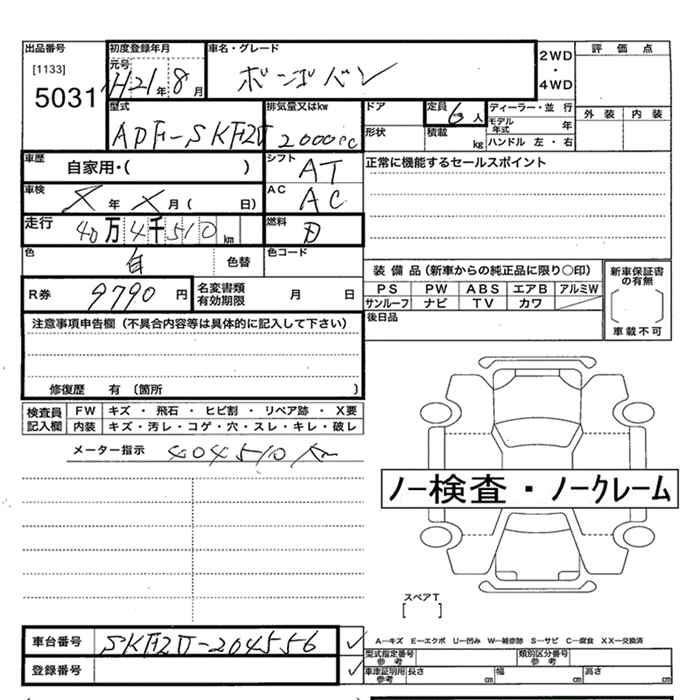 出品番号 初度登録年月 車名・グレード 2WD・4WD 評価点
[1133] 元号
5031 H21年8月 ボンゴバン
外装 内装
型式 排気量又はkw ドア 定員 6人 ディーラー・並行
ADF-SKF2V 2000cc 形状 積載 kg モデル年式 年
ハンドル 左・右
車歴 自家用・( ) シフト AT 正常に機能するセールスポイント
車検 X年X月( 日) AC AC
走行 40万4千510km 燃料
色 白 色替 色コード
装備品(新車からの純正品に限り○印) 新車保証書の有無
R券 9790円 名変書類有効期限 月 日
PS PW ABS エアB アルミW
サンルーフ ナビ TV カワ
車載不可
注意事項申告欄(不具合内容等は具体的に記入して下さい) 後日品
修復歴 有(箇所 )
検査員記入欄 FW キズ・飛石・ヒビ割・リペア跡・X要
内装 キズ・汚レ・コゲ・穴・スレ・キレ・破レ
メーター指示 404510km
ノー検査・ノークレーム
スペアT
[ ]
車台番号 SKF2V-204556 ✓
A-キズ E-エクボ U-凹み W-補修跡 S-サビ C-腐食 XX-交換済
登録番号 ✓
型式指定番号 参考 類別区分番号 参考
車庫証明用 参考 長さ cm 幅 cm 高さ cm